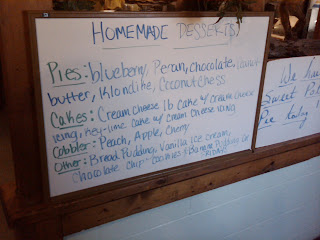 HOMEMADE DESSERTS
Pies: blueberry, Pecan, chocolate, Peanut
butter, Klondike, Coconut chess
Cakes: Cream Cheese lb Cake w/ cream cheese
icing, Key-lime cake w/ cream cheese icing
Cobbler: Peach, Apple, Cherry
Other: Bread Pudding, Vanilla Ice cream,
Chocolate chip cookies, Banana Pudding
We have
Sweet Pot
Pie today